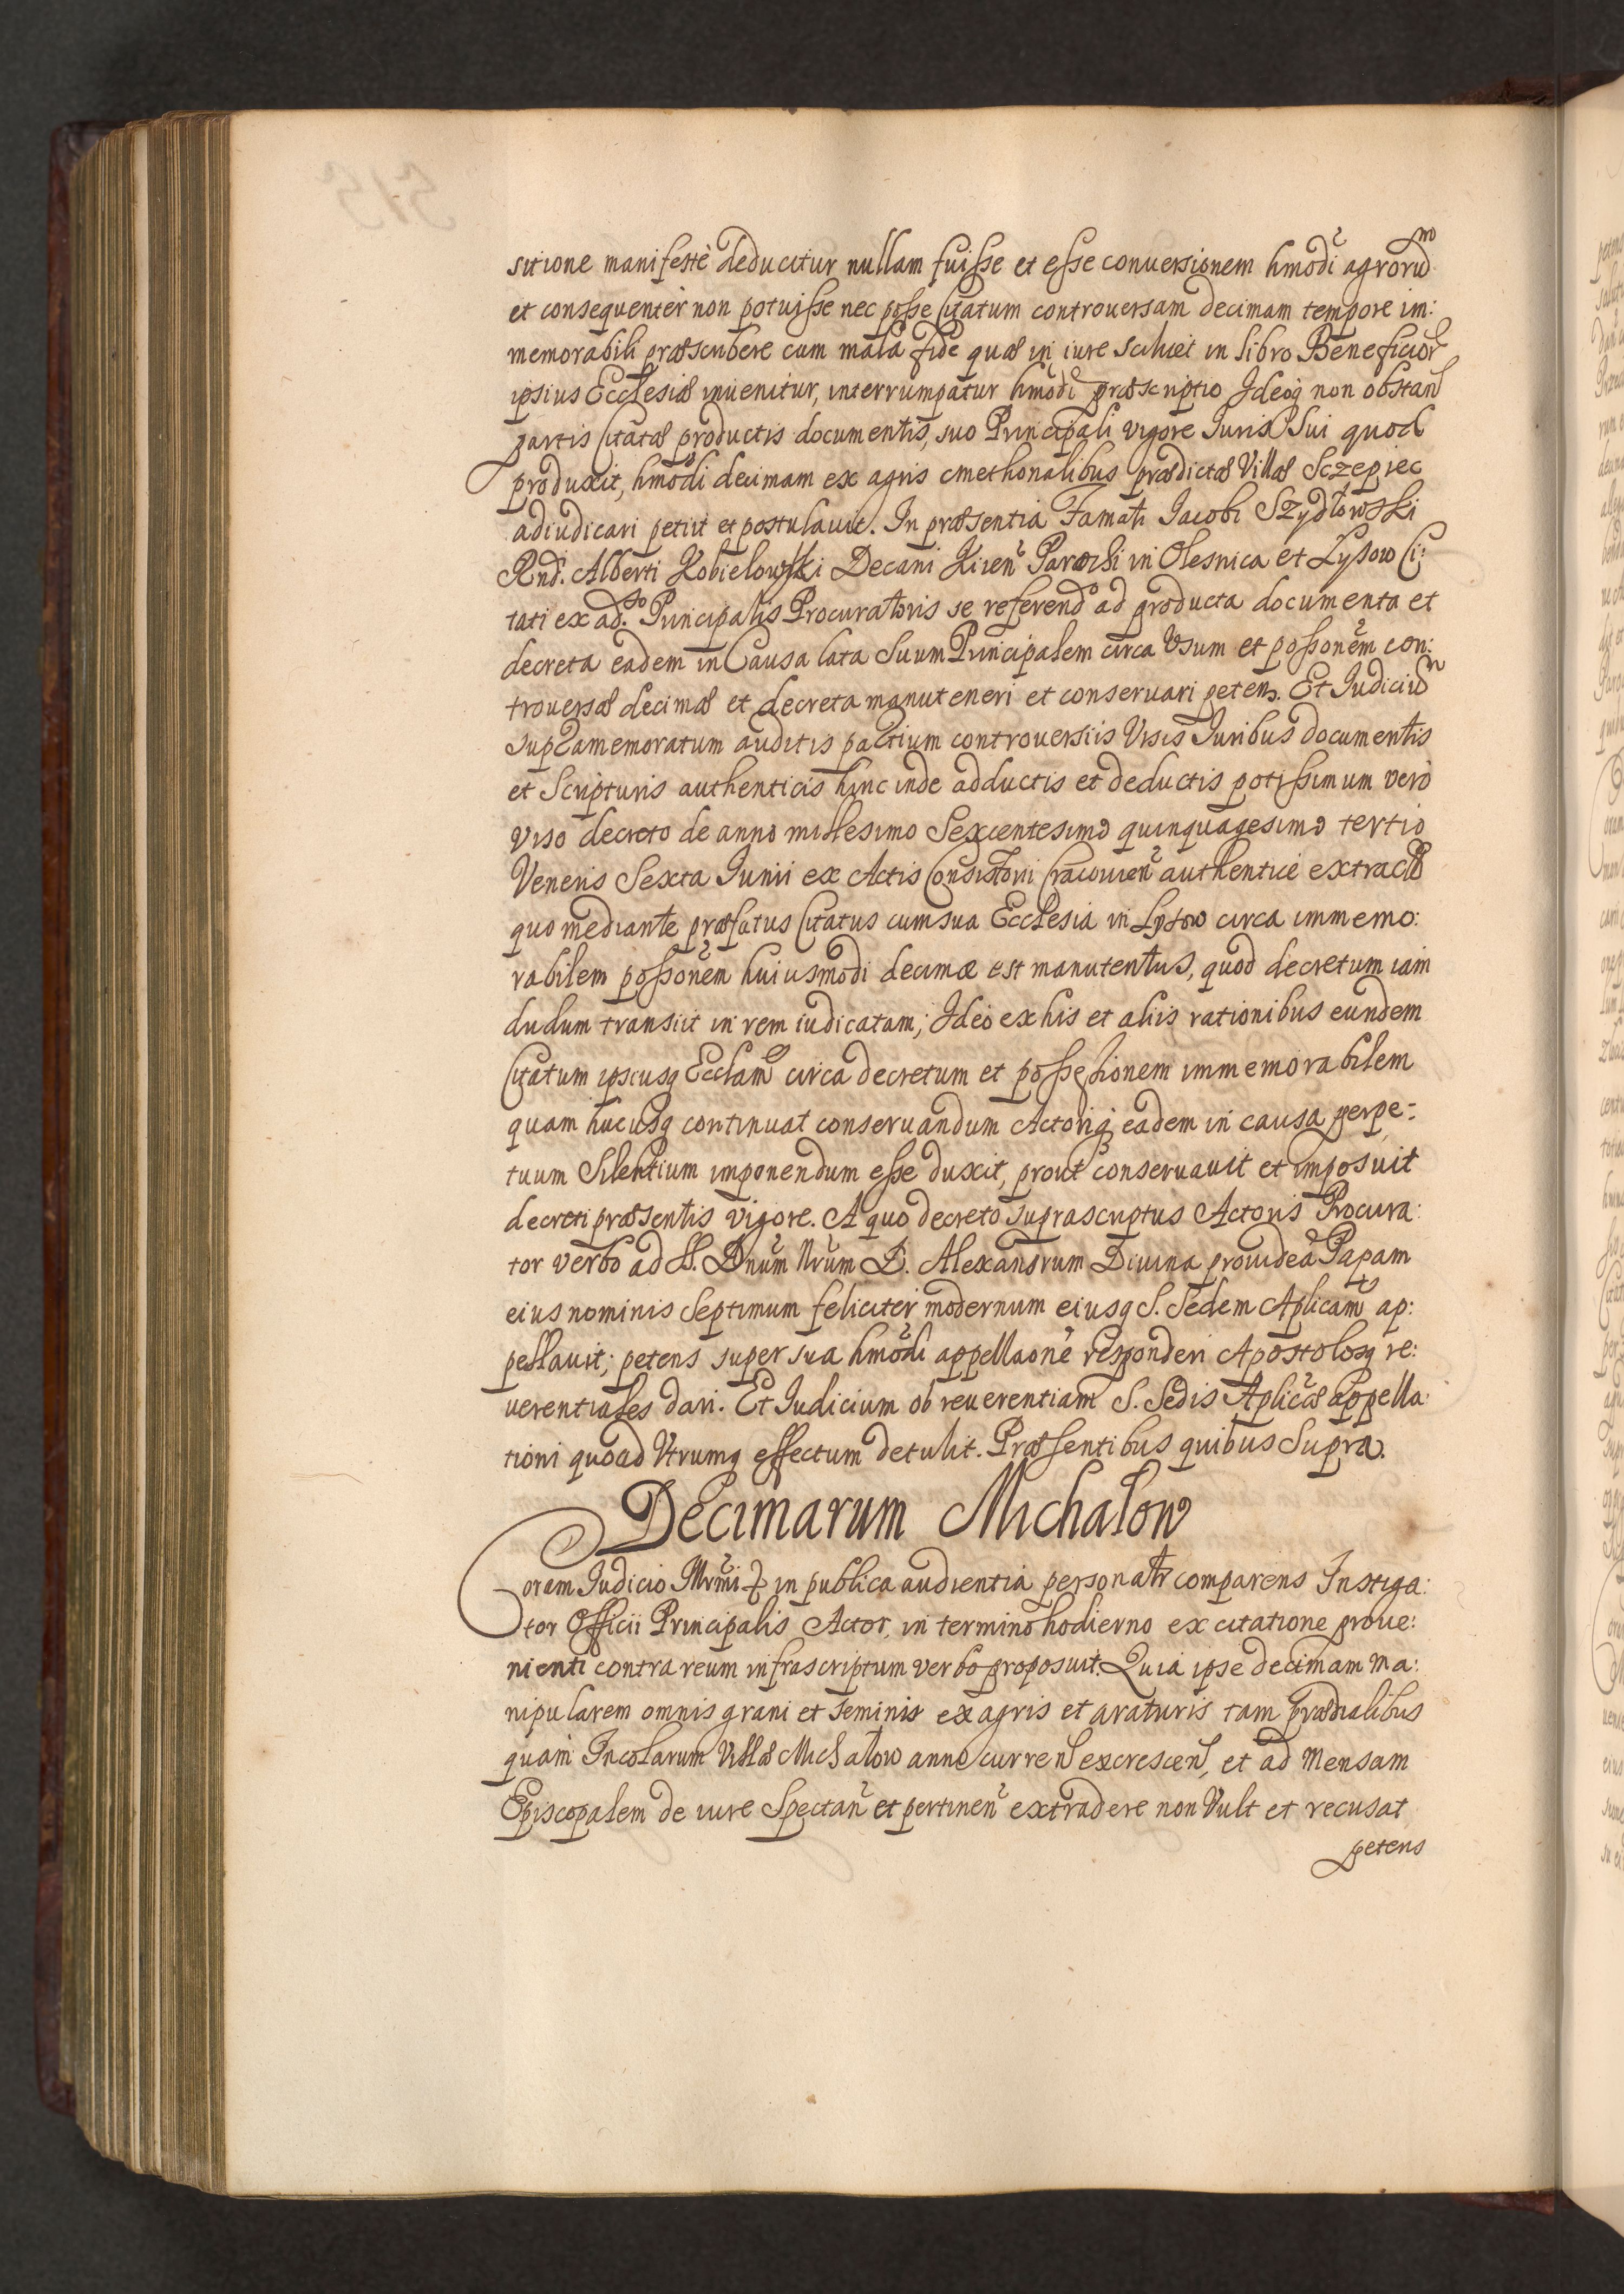 sitione manifestè deducitur nullam fuisse et esse conuersionem hmodi agrorum
et consequentèr non potuisse nec posse Citatum controuersam decimam tempore im:
memorabili præscribere cum mala fide quæ in iure scilicet in libro Beneficior
ipsius Ecclesiæ inuenitur, interrumpatur hmodi præscriptio Ideoq non obstan
partis Citatæ productis documentis, suo Principali vigore Iuris Sui quod
produxit, hmodi decimam ex agris cmethonalibus prædictæ Villæ Sczepiec
adiudicari petiit et postulauit. In præsentia Famati Iacobi Szydłowski
Rnd. Alberti Kobielowski Decani Kiien Parochi in Olesnica et Lysow Ci:
tati ex ad.so Principalis Procuratoris se referend ad producta documenta et
decreta eadem in Causa lata Suum Principalem circa Vsum et possonem con:
trouersæ decimæ et decreta manuteneri et conseruari petens. Et Iudicium
supramemoratum auditis partium controuersiis Visis Iuribus documentis
et Scripturis authenticis hinc inde adductis et deductis potissimum verò
viso decreto de anno millesimo Sexcentesimo quinquagesimo tertio
Veneris Sexta Iunii ex Actis Consistorii Cracouien authenticè extracto
quo mediante præfatus Citatus cum sua Ecclesia in Lysow circa immemo:
rabilem possonem huiusmodi decimæ est manutentus, quod decretum iam
dudum transiit in rem iudicatam; Ideò ex his et aliis rationibus eundem
Citatum ipsiusq Ecclam circa decretum et possessionem immemorabilem
quam hucusq continuat conseruandum Actoriq eadem in causa perpe:
tuum Silentium imponendum esse duxit, prout conseruauit et imposuit
decreti præsentis vigore. A quo decreto suprascriptus Actoris Procura:
tor verbo ad SS. Dnum Nrum D. Alexandrum Diuina prouidea Papam
eius nominis Septimum felicitèr modernum eiusq S. Sedem Aplicam ap:
pellauit; petens super sua hmodi appellaone responderi Apostolosq re:
uerentiales dari. Et Iudicium ob reuerentiam S. Sedis Aplicæ appella:
tioni quoad Vtrumq effectum detulit. Præsentibus quibus Supra.
Decimarum Michalow
Coram Iudicio Illrmi in publica audientia personatr comparens Instiga:
tor Officii Principalis Actor, in termino hodierno ex citatione proue:
nienti contra reum infrascriptum verbo proposuit. Quia ipse decimam ma:
nipularem omnis grani et seminis ex agris et araturis tam prædialibus
quam Incolarum Villæ Michalow anno curren excrescen, et ad Mensam
Episcopalem de iure Spectan et pertinen extradere non Vult et recusat
petens